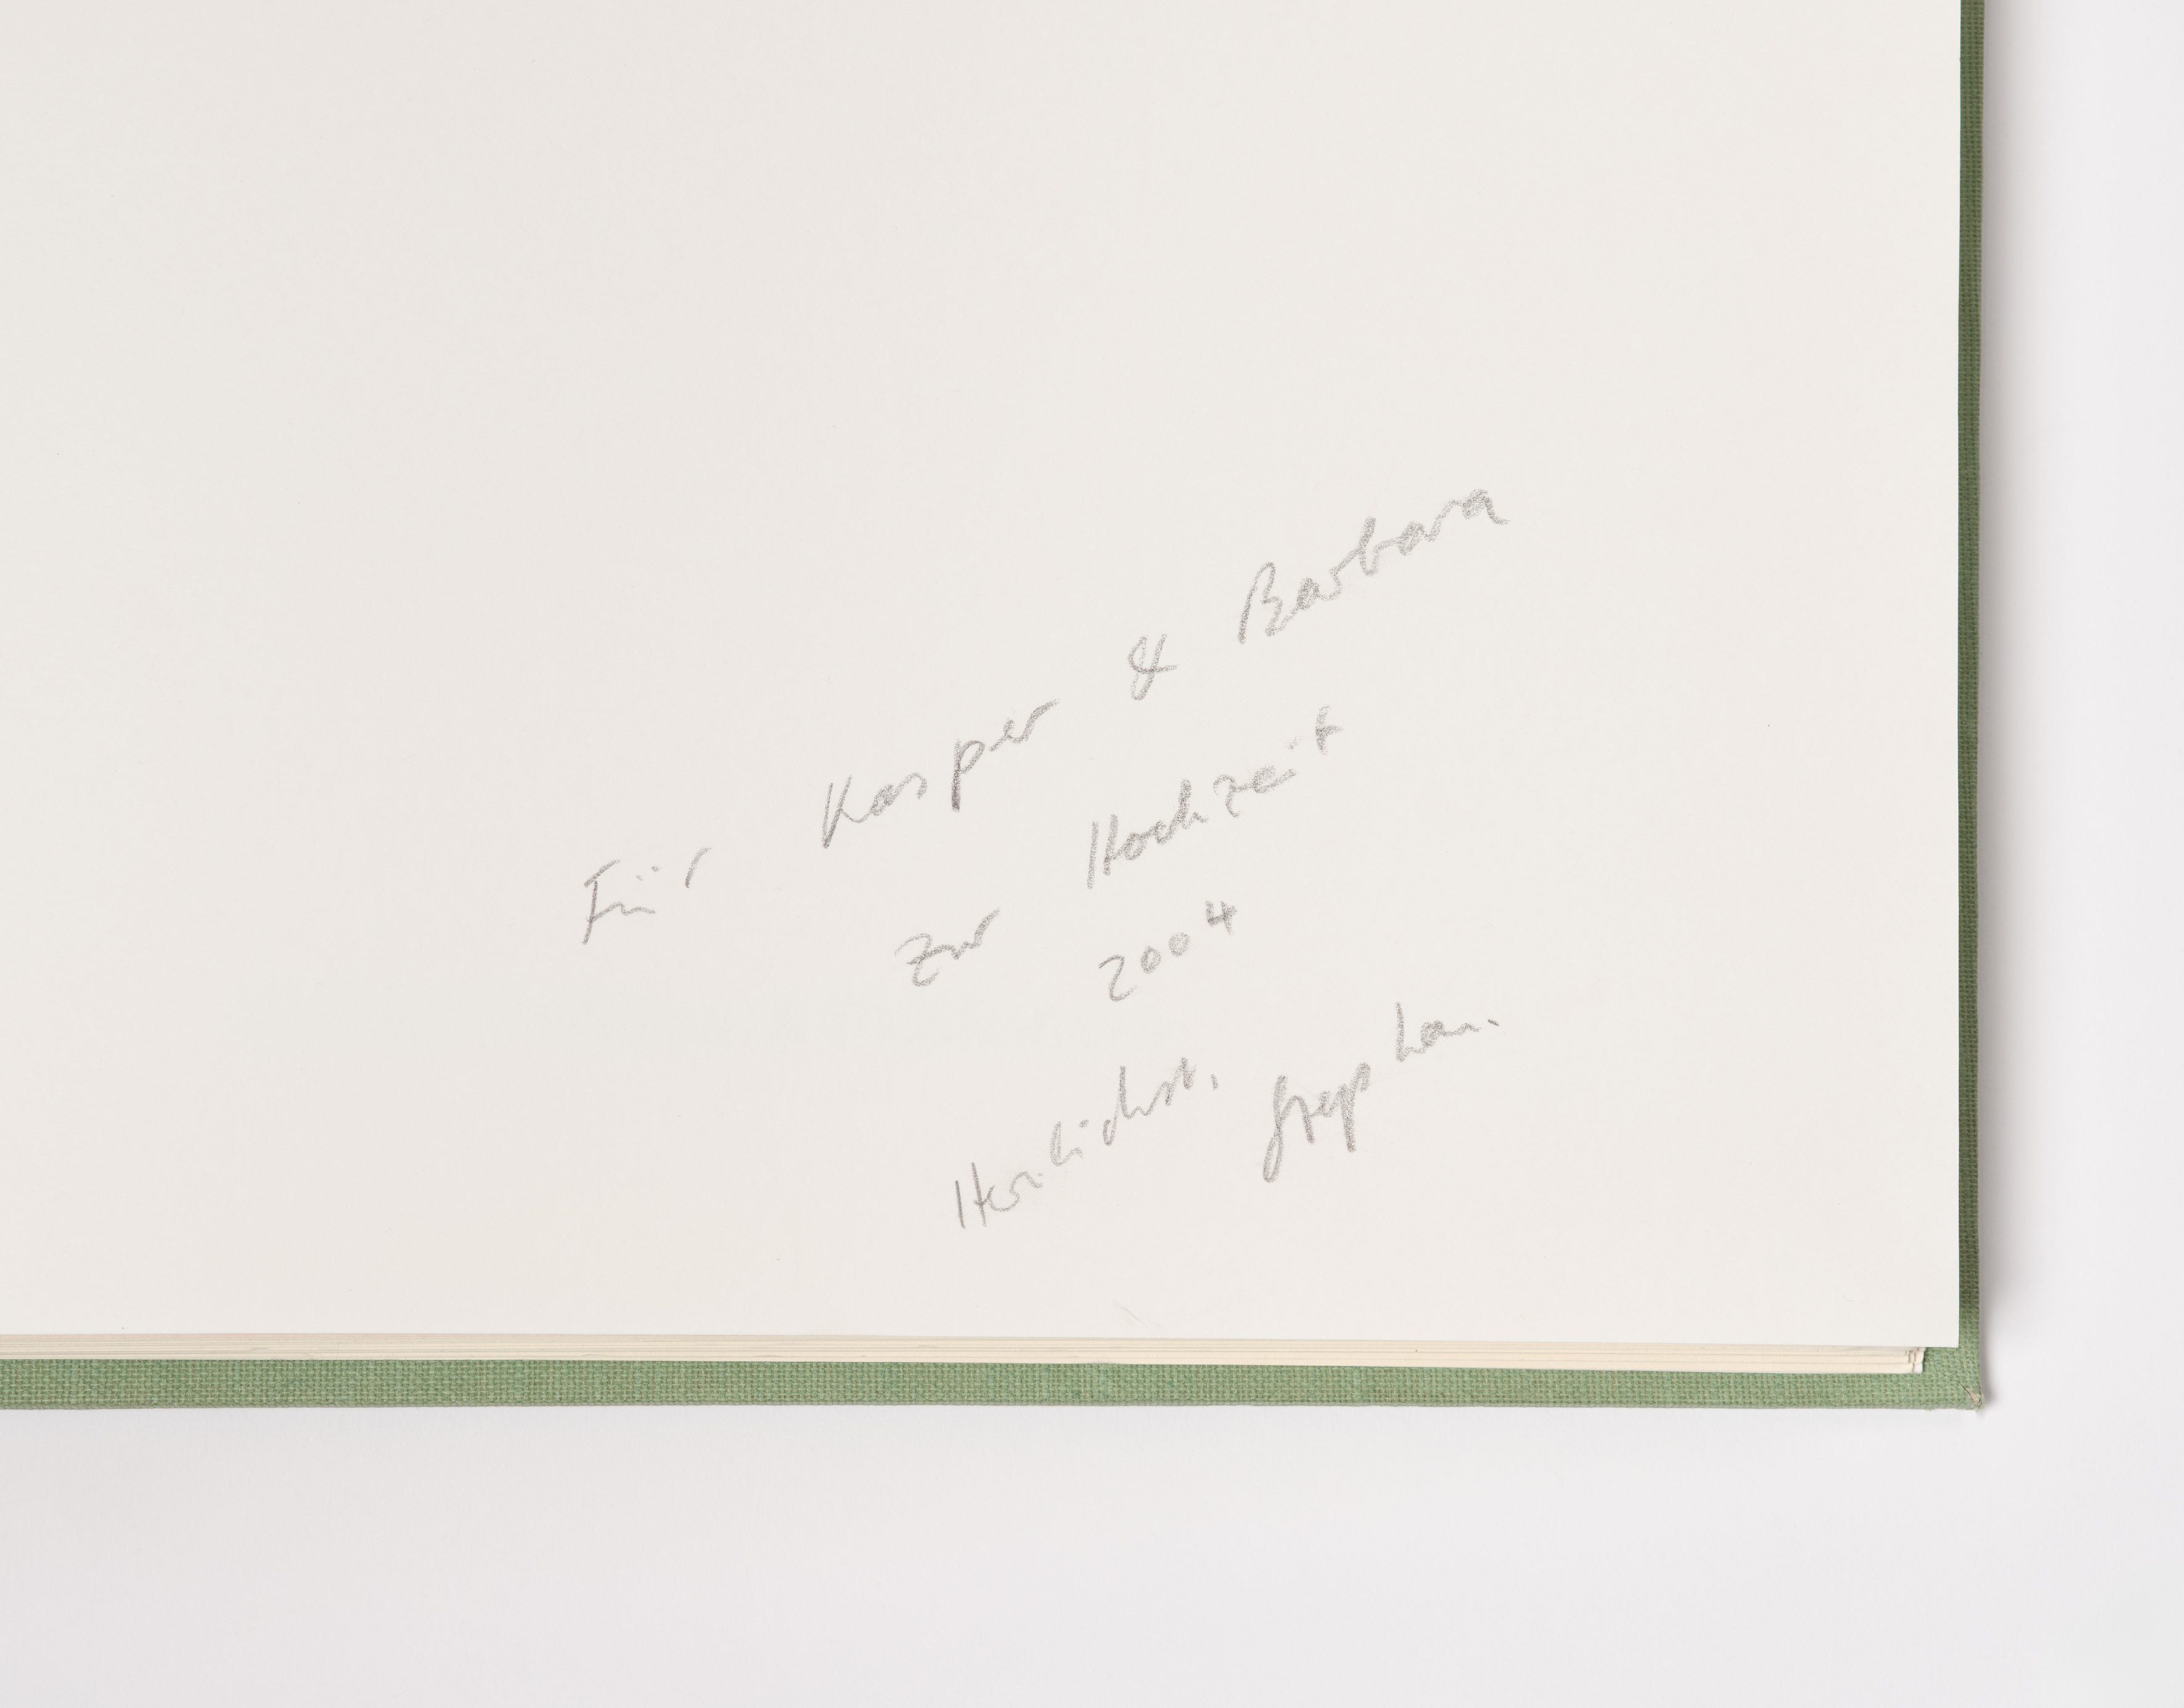 Für Kasper & Barbara
zur Hochzeit
2004
Herzlichst, Stephan.